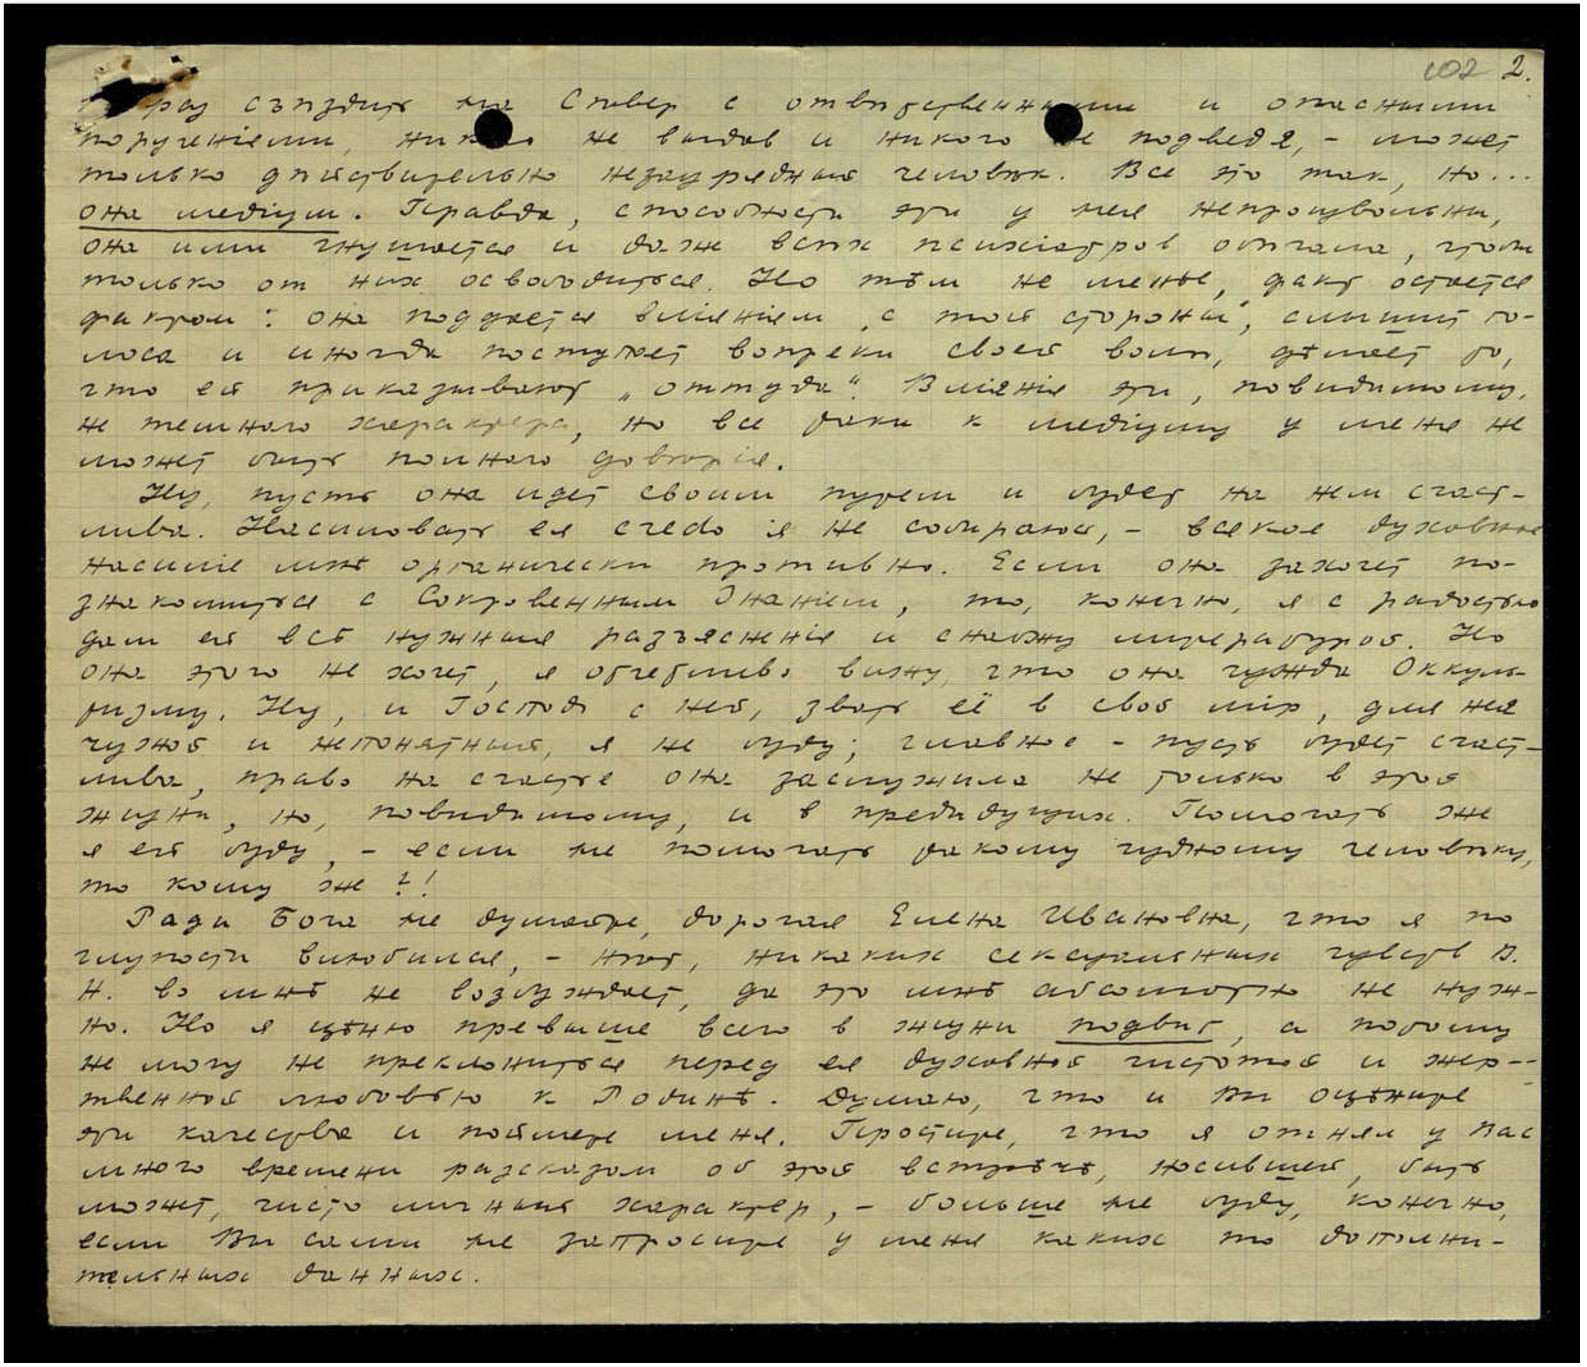 102 2.
раз съѣздить на Сѣвер с отвѣтственными и опасными
порученіями, никого не выдав и никого не подведя, – может
только дѣйствительно незаурядный человѣк. Все это так, но...
она медіум. Правда, способности эти у нея непроизвольны,
она ими гнушается и даже всѣх психіатров обѣгала, чтобы
только от них освободиться. Но тѣм не менѣе, факт остается
фактом: она поддается вліяніям „с той стороны", слышит го-
лоса и иногда поступает вопреки своей волѣ, дѣлает то,
что ей приказывают „оттуда". Вліянія эти, повидимому,
не темнаго характера, но все таки к медіуму у меня не
может быть полнаго довѣрія.
Ну, пусть она идет своим путем и будет на нем счаст-
лива. Насиловать ея credo я не собираюсь, – всякое духовное
насиліе мнѣ органически противно. Если она захочет по-
знакомиться с Сокровенным Знаніем, то, конечно, я с радостью
дам ей всѣ нужныя разъясненія и снабжу литературой. Но
она этого не хочет, я отчетливо вижу, что она чужда Оккуль-
тизму. Ну, и Господь с ней, звать её в свой мір, для нея
чужой и непонятный, я не буду; главное – пусть будет счаст-
лива, право на счастье она заслужила не только в этой
жизни, но, повидимому, и в предидущих. Помогать же
я ей буду, – если не помогать такому чудному человѣку,
то кому же?!
Ради Бога не думайте, дорогая Елена Ивановна, что я по
глупости влюбился, – нѣт, никаких сексуальных чувств В.
Н. во мнѣ не возбуждает, да это мнѣ абсолютно не нуж-
но. Но я цѣню превыше всего в жизни подвиг, а потому
не могу не преклониться перед ея духовной чистотой и жер-
твенной любовью к Родинѣ. Думаю, что и Вы оцѣните
эти качества и поймете меня. Простите, что я отнял у Вас
много времени разсказом об этой встрѣчѣ, носившей, быть
может, чисто личный характер, – больше не буду, конечно,
если Вы сами не запросите у меня каких то дополни-
тельных данных.